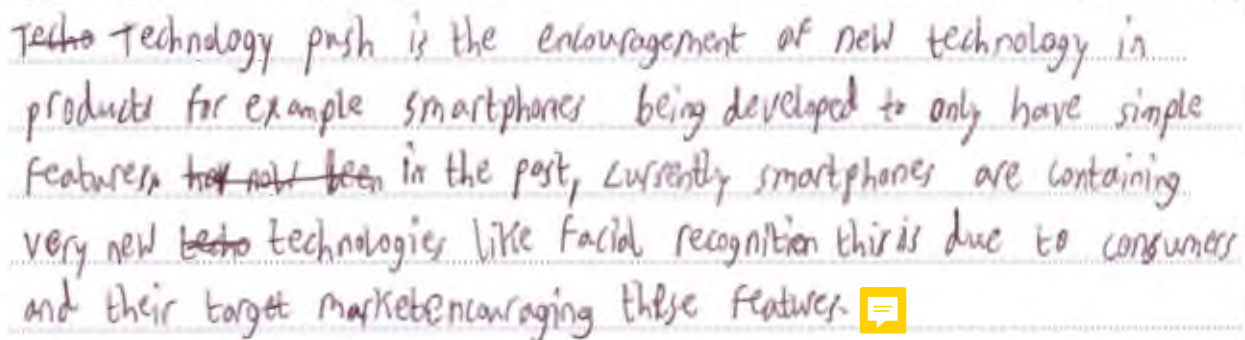 Techo Technology push is the encouragement of new technology in
products for example smartphones being developed to only have simple
features, has now been in the past, currently smartphones are containing
very new techo technologies like facial recognition this is due to consumers
and their target market encouraging these features.